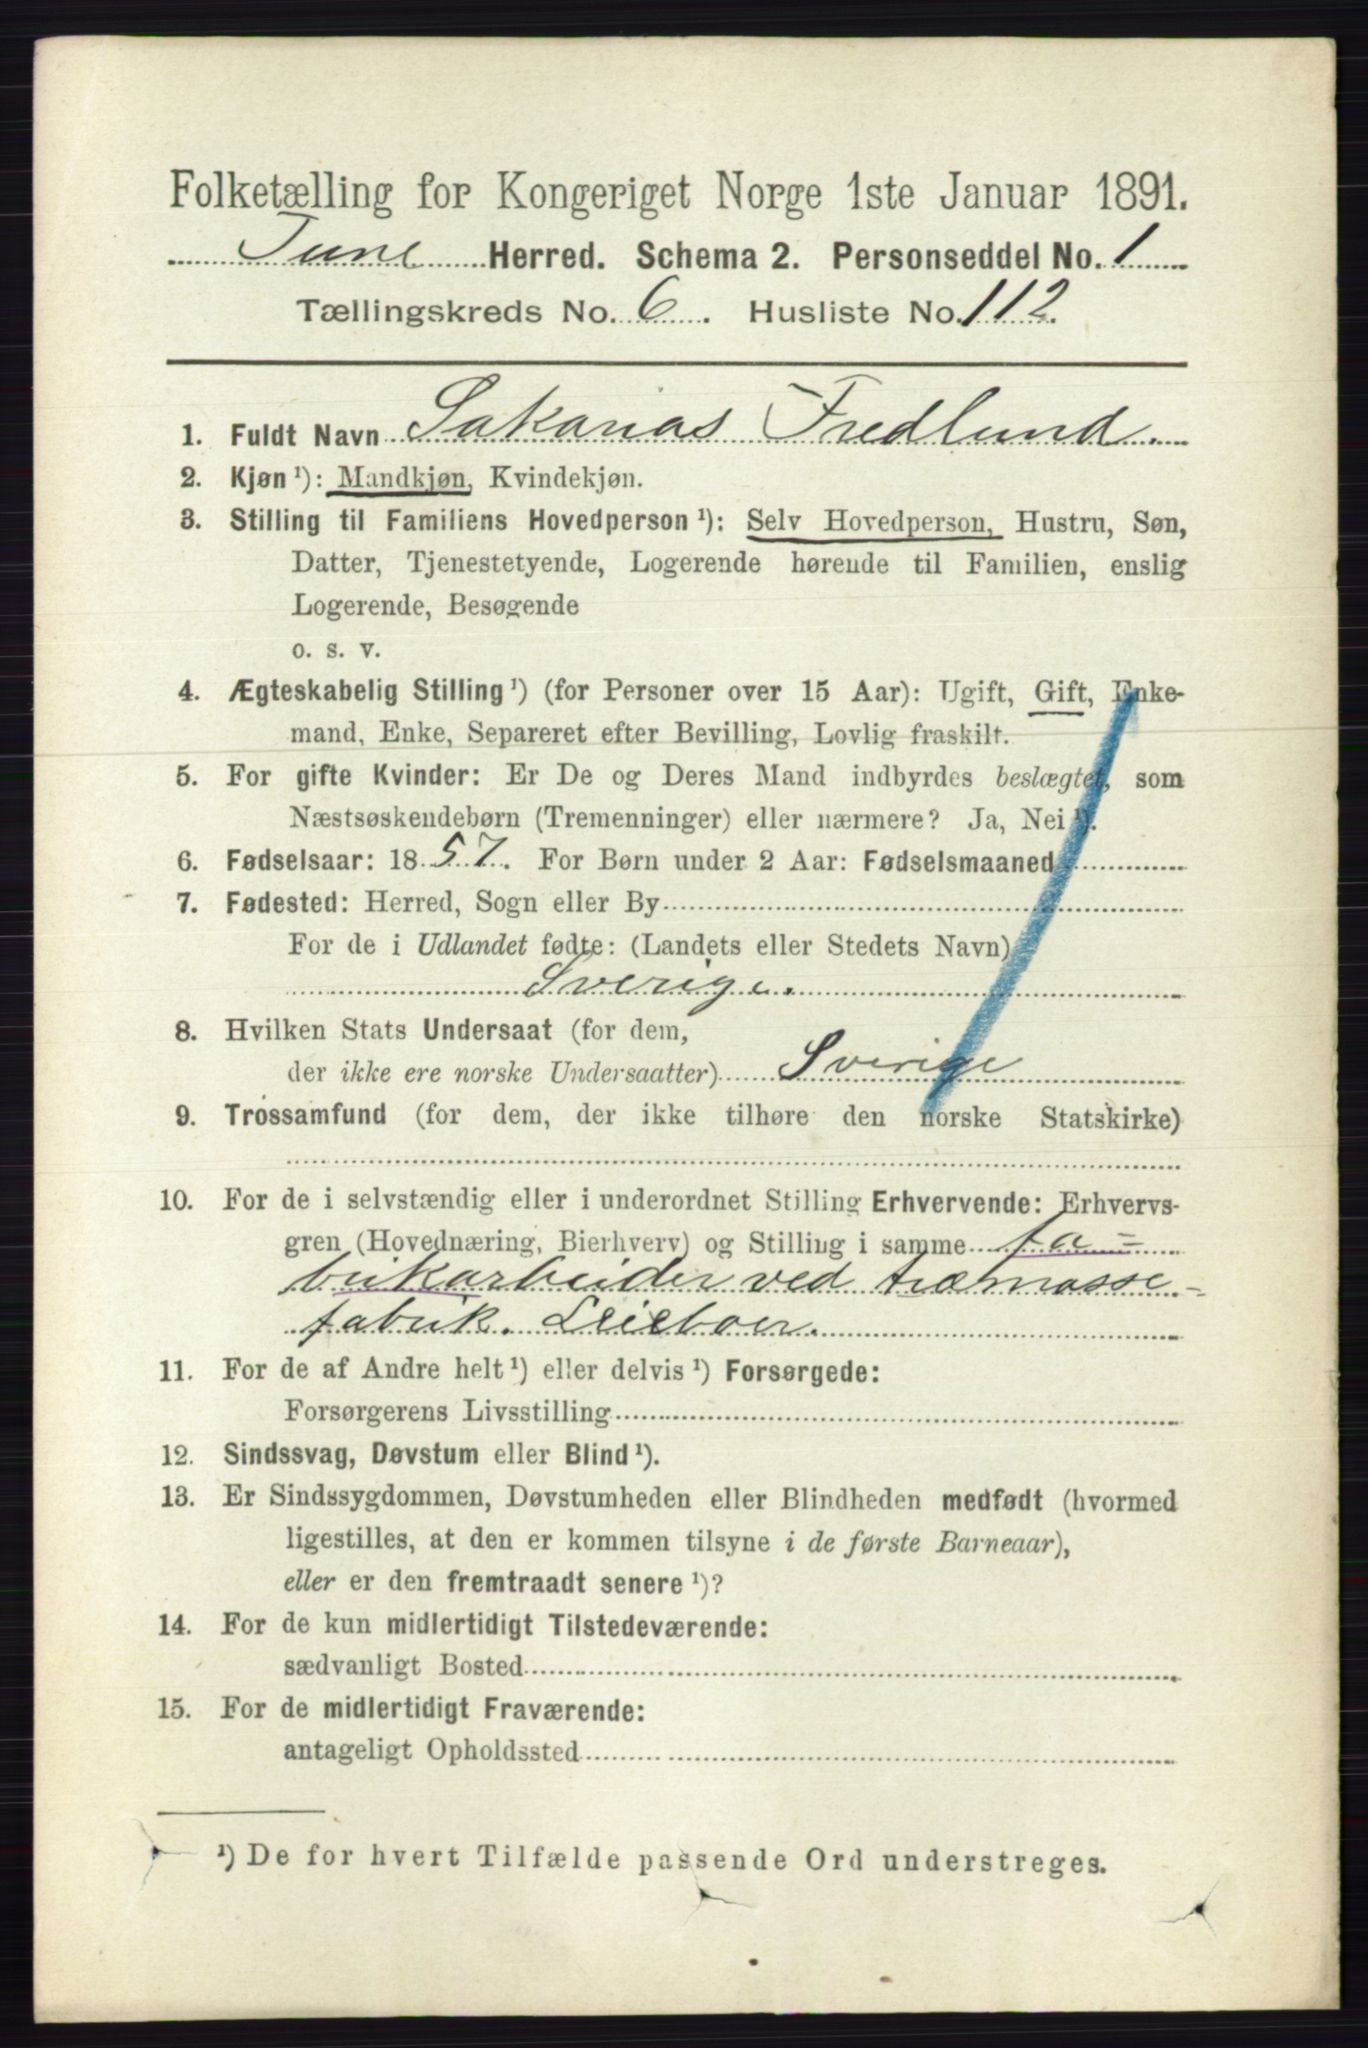 Folketælling for Kongeriget Norge 1ste Januar 1891.
Tune Herred. Schema 2. Personseddel No. 1
Tællingskreds No. 6. Husliste No. 112.
1. Fuldt Navn Sakarias Fredlund.
2. Kjøn ¹): Mandkjøn, Kvindekjøn.
3. Stilling til Familiens Hovedperson ¹): Selv Hovedperson, Hustru, Søn,
Datter, Tjenestetyende, Logerende hørende til Familien, enslig
Logerende, Besøgende
o. s. v.
4. Ægteskabelig Stilling ¹) (for Personer over 15 Aar): Ugift, Gift, Enke-
mand, Enke, Separeret efter Bevilling, Lovlig fraskilt.
5. For gifte Kvinder: Er De og Deres Mand indbyrdes beslægtet, som
Næstsøskendebørn (Tremenninger) eller nærmere? Ja, Nei ¹).
6. Fødselsaar: 1857. For Børn under 2 Aar: Fødselsmaaned
7. Fødested: Herred, Sogn eller By
For de i Udlandet fødte: (Landets eller Stedets Navn)
Sverige.
8. Hvilken Stats Undersaat (for dem,
der ikke ere norske Undersaatter) Sverige
9. Trossamfund (for dem, der ikke tilhøre den norske Statskirke)
10. For de i selvstændig eller i underordnet Stilling Erhvervende: Erhvervs-
gren (Hovednæring, Bierhverv) og Stilling i samme fa=
brikarbeider ved træmasse=
fabrik. Leieboer.
11. For de af Andre helt ¹) eller delvis ¹) Forsørgede:
Forsørgerens Livsstilling
12. Sindssvag, Døvstum eller Blind ¹).
13. Er Sindssygdommen, Døvstumheden eller Blindheden medfødt (hvormed
ligestilles, at den er kommen tilsyne i de første Barneaar),
eller er den fremtraadt senere ¹)?
14. For de kun midlertidigt Tilstedeværende:
sædvanligt Bosted
15. For de midlertidigt Fraværende:
antageligt Opholdssted
¹) De for hvert Tilfælde passende Ord understreges.